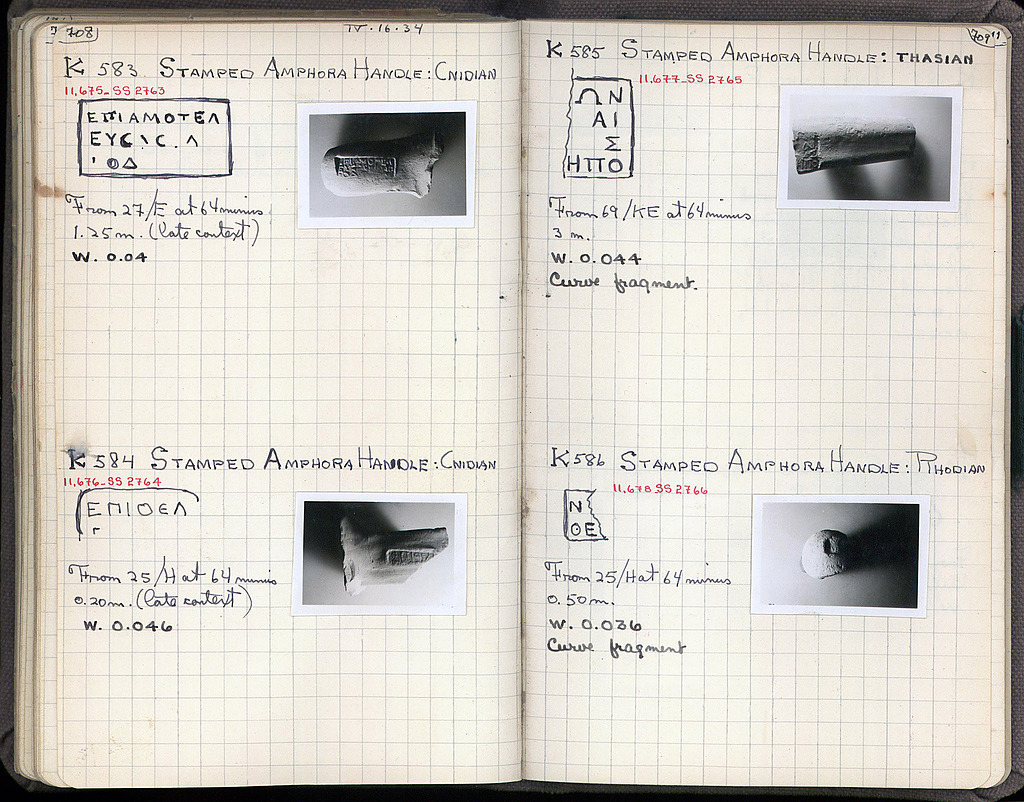 708
IV.16.34
K 583 STAMPED AMPHORA HANDLE: CNIDIAN
11,675-SS 2763
ΕΠΙΑΜΟΤΕΛ
From 27/E at 64 minus
1.25 m. (late context)
W. 0.04
K 584 STAMPED AMPHORA HANDLE: CNIDIAN
11,676-SS 2764
ΕΠΙΘΕΛ
Γ
From 25/H at 64 minus
0.20 m. (late context)
W. 0.046
709
K 585 STAMPED AMPHORA HANDLE: THASIAN
11,677-SS 2765
ΩΝ
ΑΙ
Σ
ΗΠΟ
From 69/KE at 64 minus
3 m.
W. 0.044
Curve fragment.
K 586 STAMPED AMPHORA HANDLE: RHODIAN
11,678 SS 2766
Ν
ΘΕ
From 25/H at 64 minus
0.50 m.
W. 0.036
Curve fragment